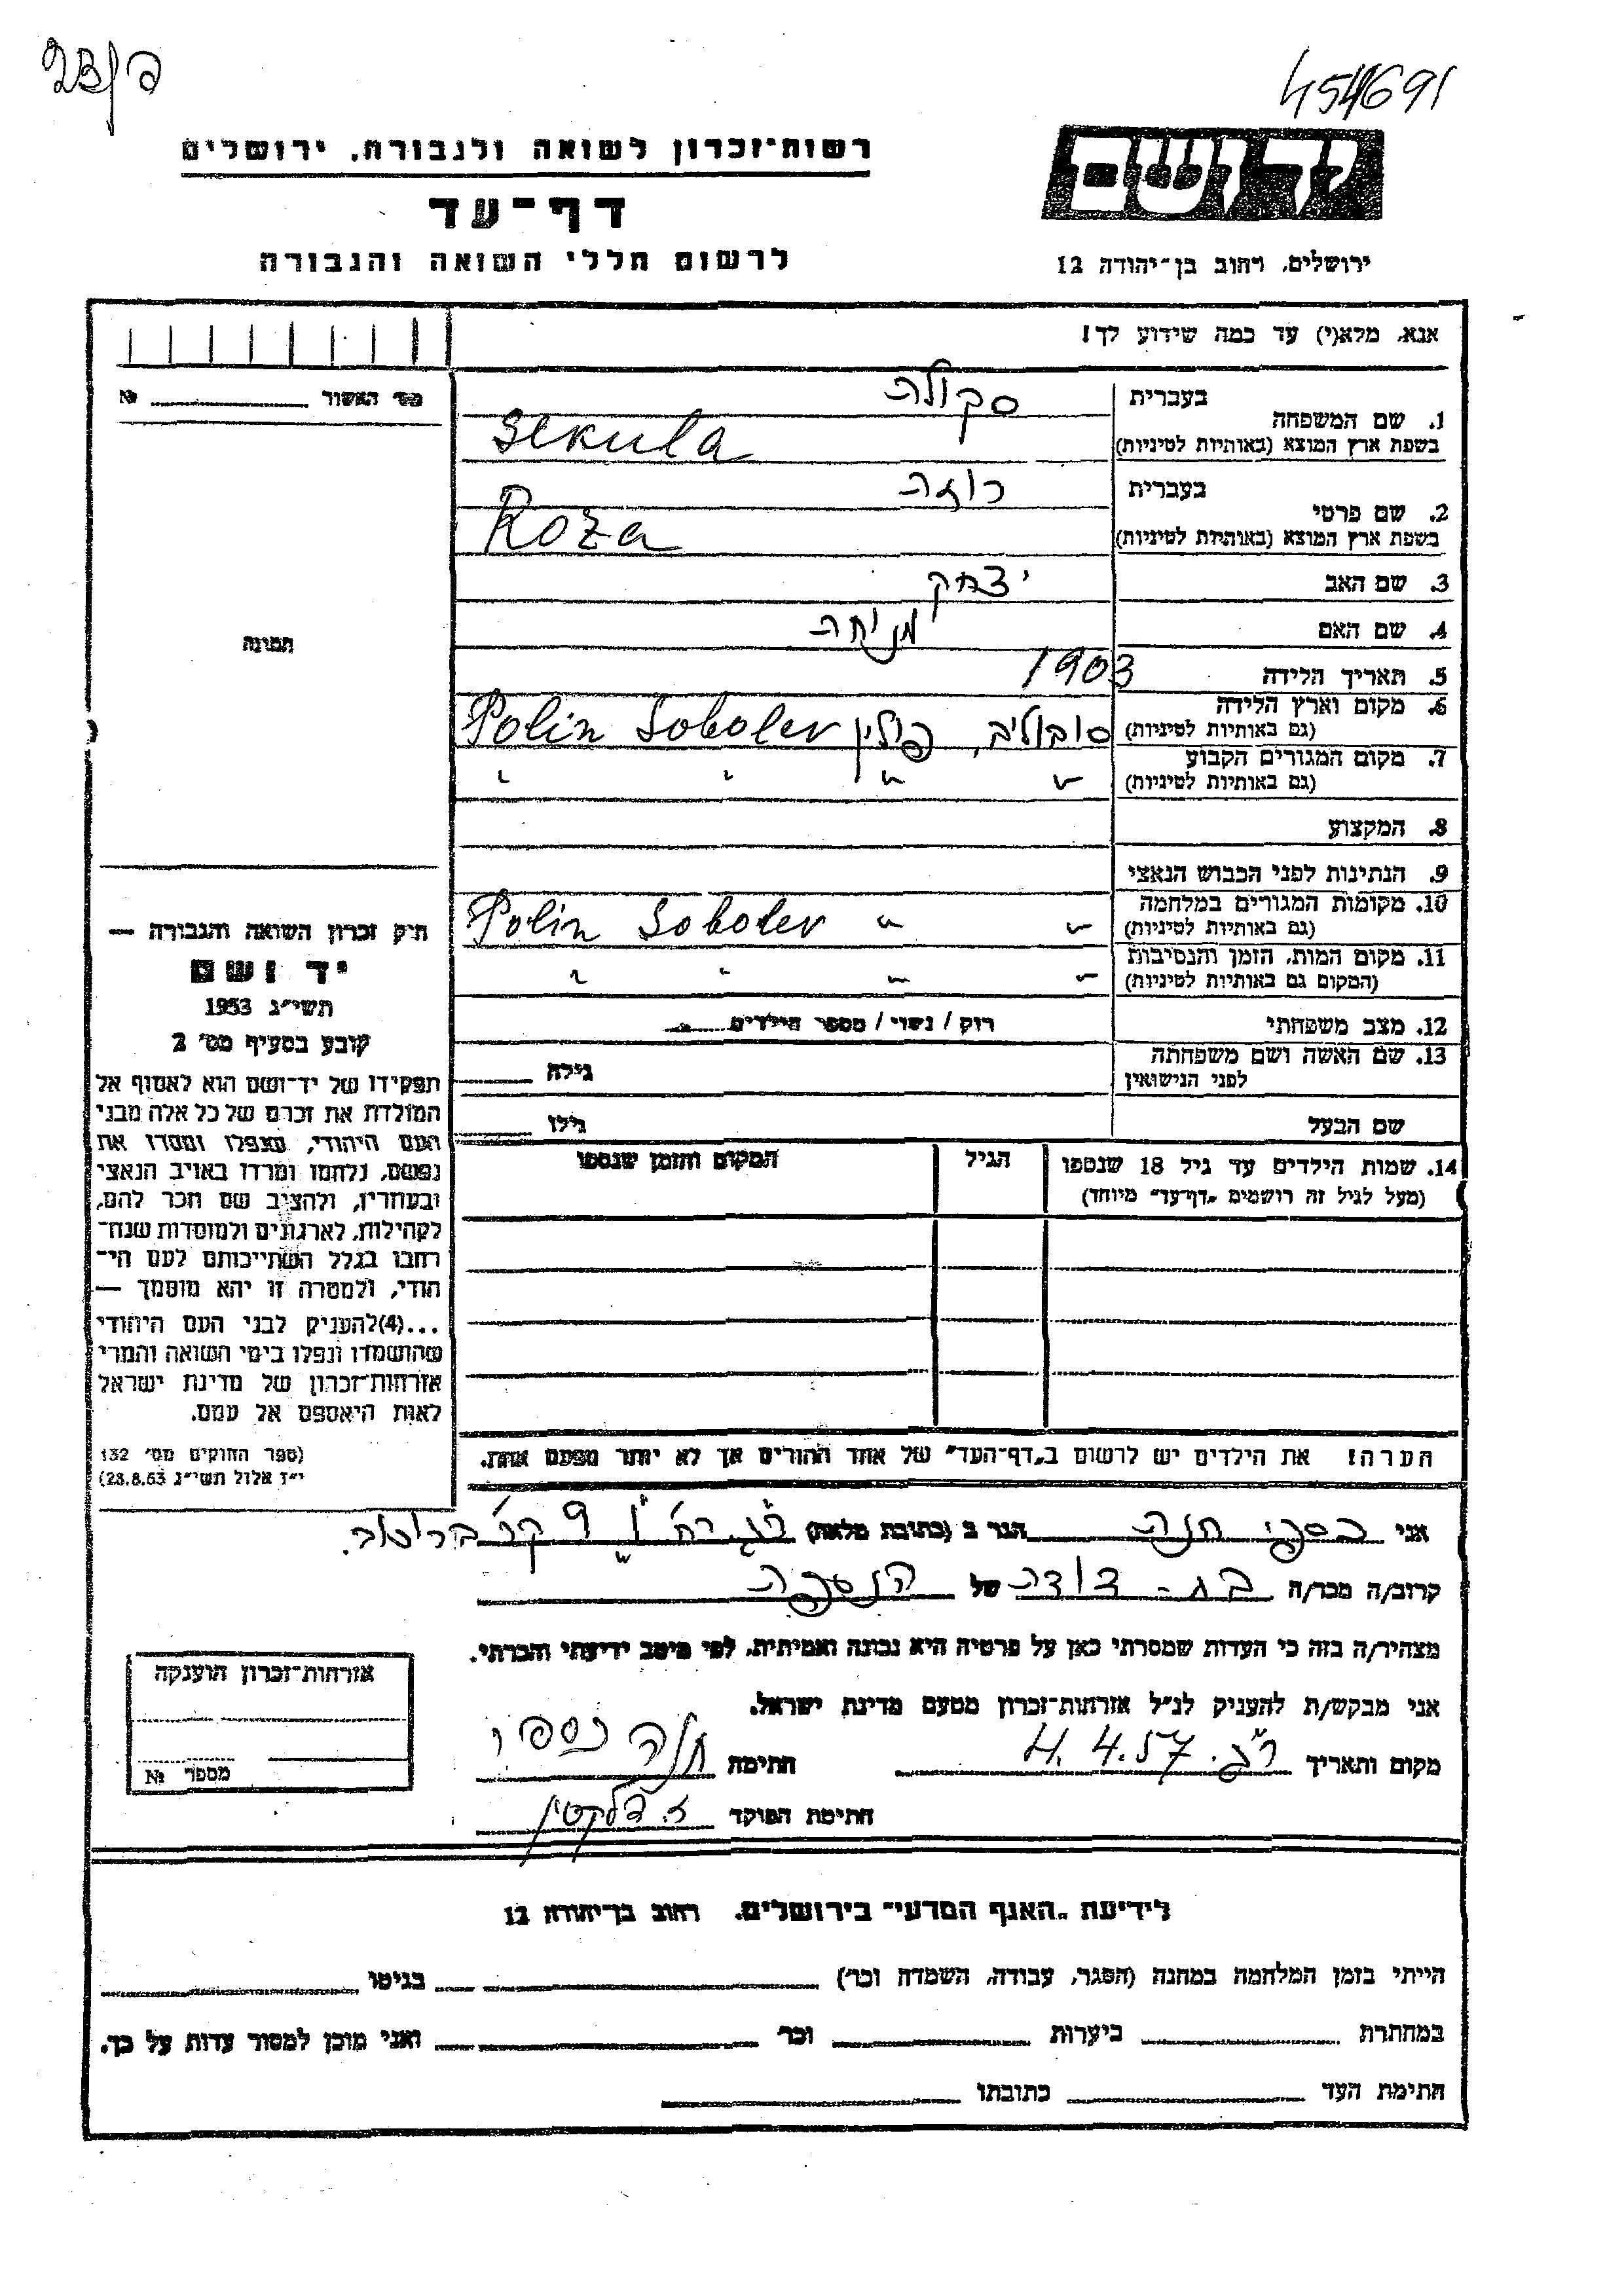 454691
רשות־זכרון לשואה ולגבורה, ירושלים
יד ושם
דף־עד
לרשום חללי השואה והגבורה
ירושלים, רחוב בן־יהודה 12
אנא, מלא(י) עד כמה שידוע לך!
מס׳ האשור №
בעברית סקולה
1. שם המשפחה
בשפת ארץ המוצא (באותיות לטיניות) Sekula
בעברית רוזה
2. שם פרטי
בשפת ארץ המוצא (באותיות לטיניות) Roza
3. שם האב יצחק
4. שם האם מניחה
5. תאריך הלידה 1903
6. מקום וארץ הלידה
(גם באותיות לטיניות) סובוליב, פולין Polin Sobolev
7. מקום המגורים הקבוע
(גם באותיות לטיניות) " " " "
8. המקצוע
9. הנתינות לפני הכבוש הנאצי
10. מקומות המגורים במלחמה
(גם באותיות לטיניות) " " Polin Sobolev
11. מקום המות, הזמן והנסיבות
(המקום גם באותיות לטיניות) " " " "
12. מצב משפחתי רוק / נשוי / מספר הילדים
13. שם האשה ושם משפחתה
לפני הנישואין גילה
שם הבעל גילו
14. שמות הילדים עד גיל 18 שנספו הגיל המקום והזמן שנספו
(מעל לגיל זה רושמים „דף־עד״ מיוחד)
הערה! את הילדים יש לרשום ב„דף־העד״ של אחד ההורים אך לא יותר מפעם אחת.
תמונה
חיק זכרון השואה והגבורה —
יד ושם
תשי״ג 1953
קובע בסעיף מס׳ 2
תפקידו של יד־ושם הוא לאסוף אל
המולדת את זכרם של כל אלה מבני
העם היהודי, שנפלו ומסרו את
נפשם, נלחמו ומרדו באויב הנאצי
ובעוזריו, ולהציב שם וזכר להם,
לקהילות, לארגונים ולמוסדות שנח־
רבו בגלל השתייכותם לעם הי־
הודי, ולמטרה זו יהא מוסמך —
...(4)להעניק לבני העם היהודי
שהושמדו ונפלו בימי השואה והמרי
אזרחות־זכרון של מדינת ישראל
לאות היאספם אל עמם.
(ספר החוקים מס׳ 132
י״ז אלול תשי״ג 28.8.53)
אני כספי חנה הגר ב (כתובת מלאה)
קרוב/ה מכר/ה בת-דודה של הנספה
מצהיר/ה בזה כי העדות שמסרתי כאן על פרטיה היא נכונה ואמיתית, לפי מיטב ידיעתי והכרתי.
אני מבקש/ת להעניק לנ״ל אזרחות־זכרון מטעם מדינת ישראל.
מקום ותאריך ר״ג. 4.57 חתימת חנה כספי
חתימת הפוקד
אזרחות־זכרון הוענקה
מספר №
לידיעת „האגף המדעי״ בירושלים, רחוב בן־יהודה 12
הייתי בזמן המלחמה במחנה (הסגר, עבודה, השמדה וכר׳) בגיטו
במחתרת ביערות וכר׳ ואני מוכן למסור עדות על כך.
חתימת העד כתובתו